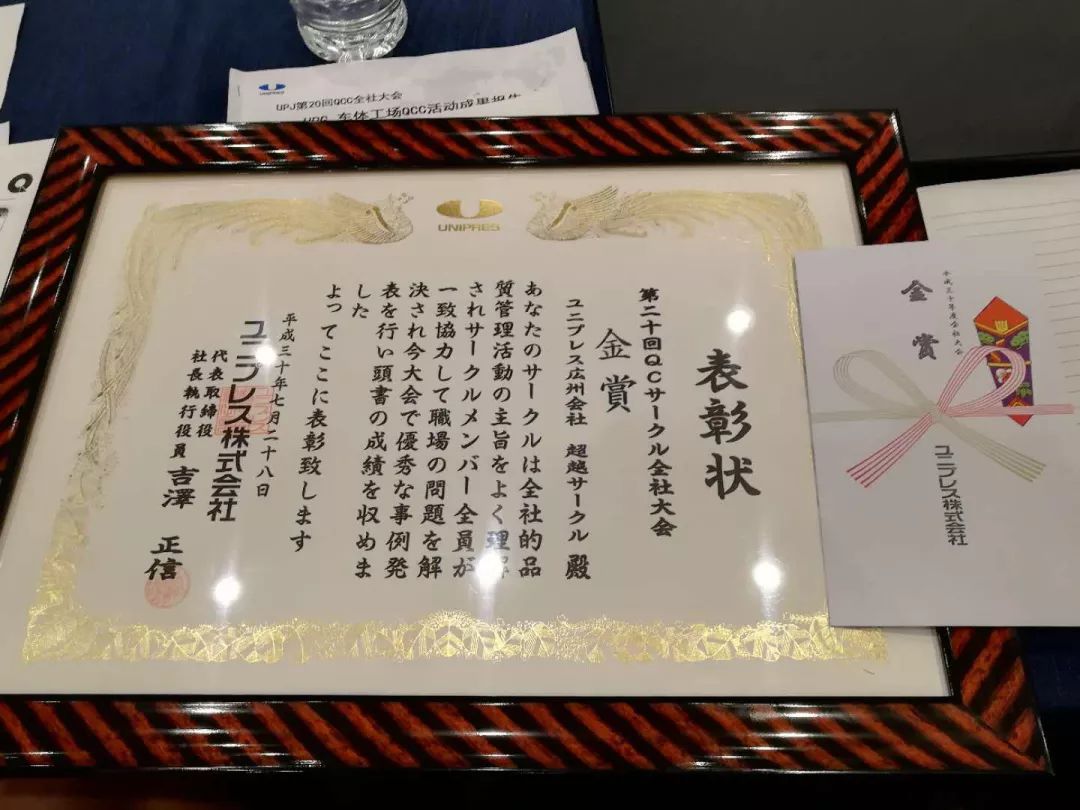 UNIPRES
UPJ第20回QCC全社大会
UPG 车体工场QCC活动成果报告
UNIPRES
表彰状
第二十回QCサークル全社大会
金賞
ユニプレス広州会社 超越サークル 殿
あなたのサークルは全社的品
質管理活動の主旨をよく理解
されサークルメンバー全員が
一致協力して職場の問題を解
決され今大会で優秀な事例発
表を行い頭書の成績を収めま
した
よってここに表彰致します
平成三十年七月二十八日
ユニプレス株式会社
代表取締役
社長執行役員 吉澤 正信
平成三十年度全社大会
金賞
ユニプレス株式会社